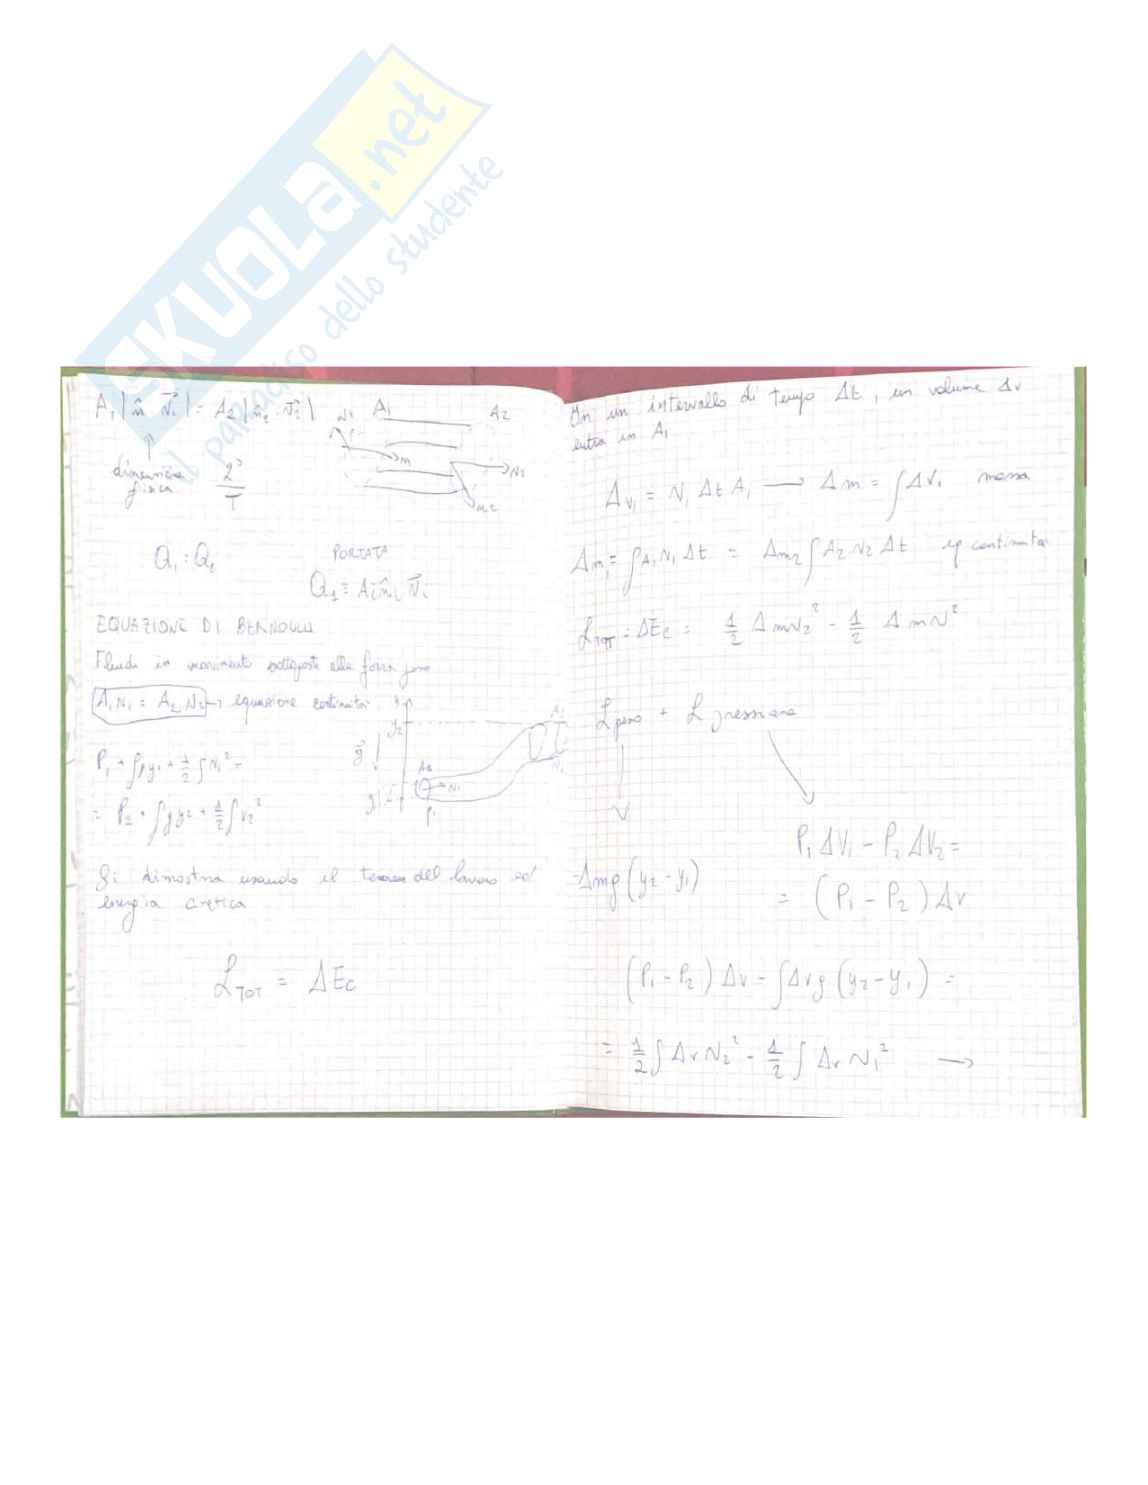 SKUOLA.net
il paradiso dello studente
A₁|n̂ v⃗₁| = A₂|n̂₂ v⃗₂|
v₁ A₁ A₂
n v₂
n₂
dimensione
fisica
L³/T
Q₁ = Q₂
PORTATA
Q₁ = A₁ n̂₁ v⃗₁
EQUAZIONE DI BERNOULLI
Fluidi in movimento sottoposte alla forza peso
A₁v₁ = A₂v₂ → equazione continuità
y
y₂
g⃗
y₁
A₁
v₁
P₁
A₂
v₂
P₁ + ρgy₁ + 1/2 ρv₁² =
= P₂ + ρgy₂ + 1/2 ρv₂²
Si dimostra usando il teorema del lavoro ed
energia cinetica
L_TOT = ΔE_C
In un intervallo di tempo Δt, un volume Δv
entra in A₁
Δv₁ = v₁ Δt A₁ → Δm = ρΔv₁ massa
Δm₁ = ρA₁v₁Δt = Δm₂ρA₂v₂Δt eq continuità
L_TOT = ΔE_C = 1/2 Δmv₂² - 1/2 Δmv²
L peso + L pressione
P₁ΔV₁ - P₂ΔV₂ =
-Δmg(y₂ - y₁)
= (P₁ - P₂)Δv
(P₁ - P₂)Δv - ρΔvg(y₂ - y₁) =
= 1/2 ρΔv v₂² - 1/2 ρΔv v₁² →